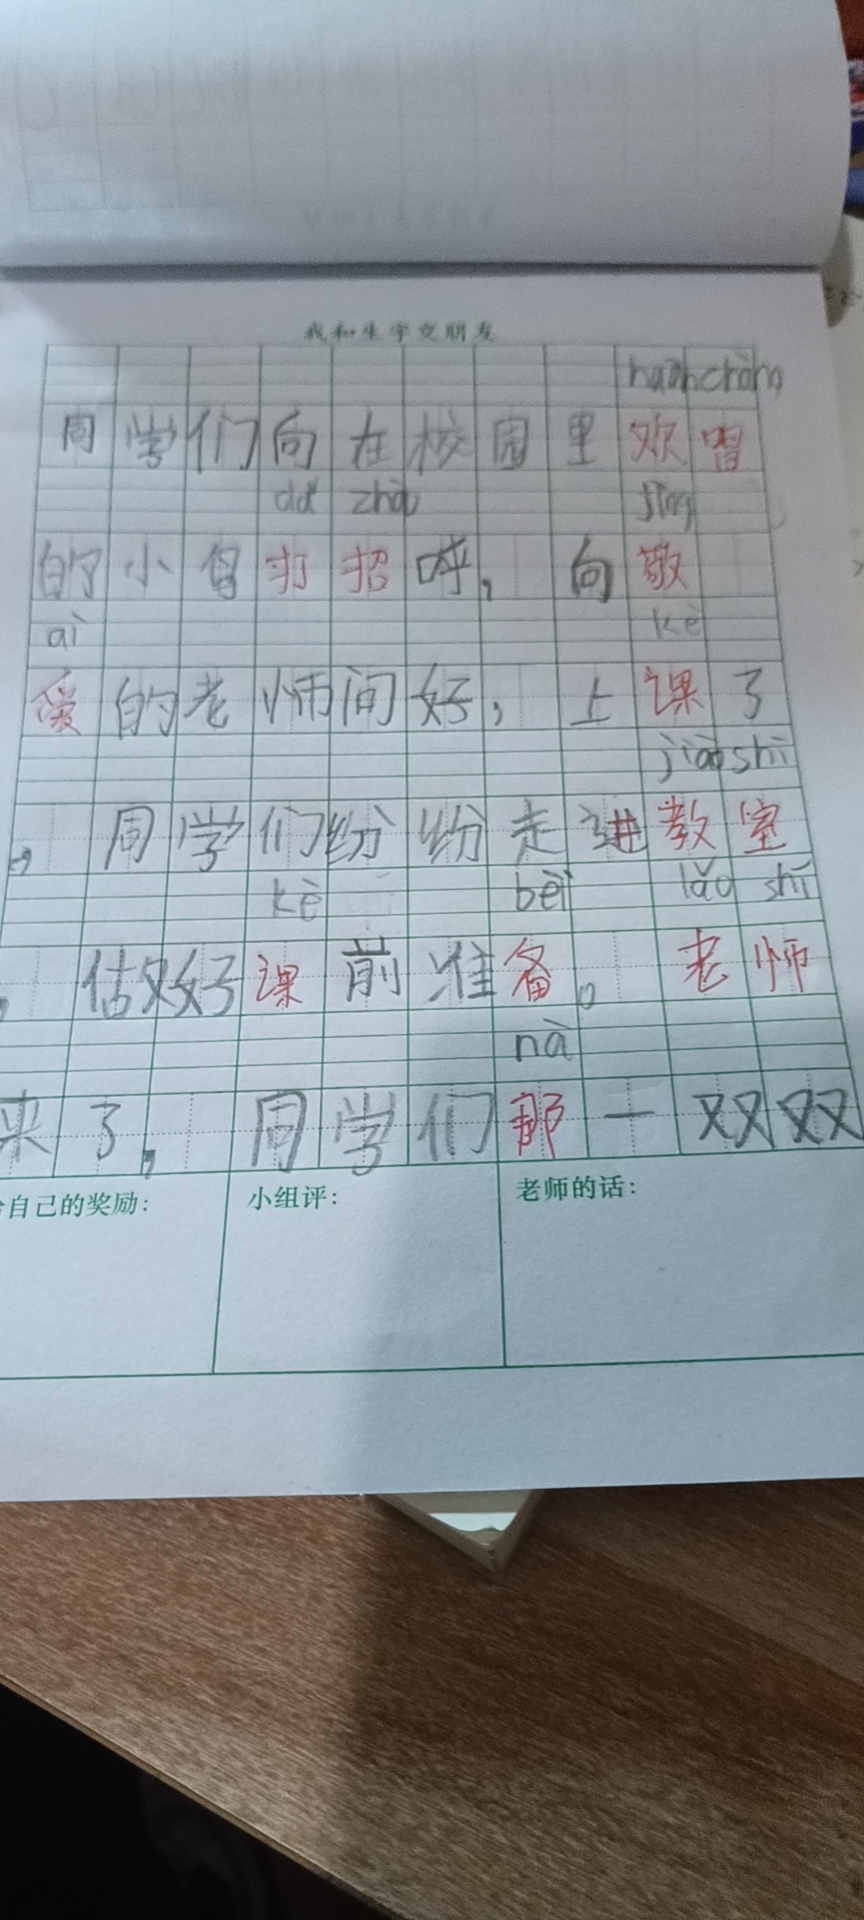 我和生字交朋友
huān chàng
同学们向在校园里欢唱
dǎ zhāo jìng
的小鸟打招呼，向敬
ài kè
爱的老师问好，上课了
jiào shì
，同学们纷纷走进教室
kè bèi lǎo shī
，估好课前准备。老师
nà
来了，同学们那一双双
自己的奖励：
小组评：
老师的话：